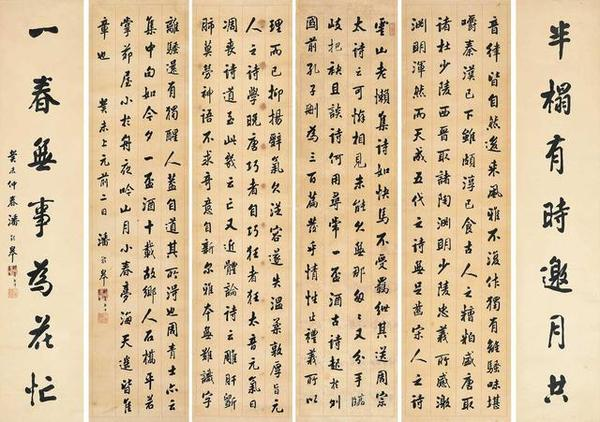 半榻有時邀月共
音律皆自然邈來風雅不復作獨有離騷味堪
嚼秦漢已下雖頗淳已食古人之糟粕盛唐取
諸杜少陵西晉取諸陶淵明少陵忠義所感激
淵明渾然而天成五代之詩無足宗人之詩
雲山老懶集詩如快馬不受羈紲其送周宗
太詩云可惜相見未能久無那匆匆又分手臨
岐把袂且談詩何用尋常一盃酒古詩起於列
國前孔子刪為三百篇發乎情性止禮義所以
理而已抑揚辭氣欠從容還失溫柔敦厚旨元
人之詩學晚唐巧者自巧狂者狂太音元氣日
凋喪詩道至此幾云亡又近體論詩云雕肝斵
肺莫勞神語不求奇意自新爾雅本無難識字
離騷還有獨醒人蓋自道其所得也周青士亦云
集中句如今夕一盃酒十載故鄉人石橋平若
掌茆屋小於舟夜吟山月小春夢海天遙皆雋
章也 癸未上元前二日 潘齡皋
一春無事為花忙
癸未仲春潘齡皋